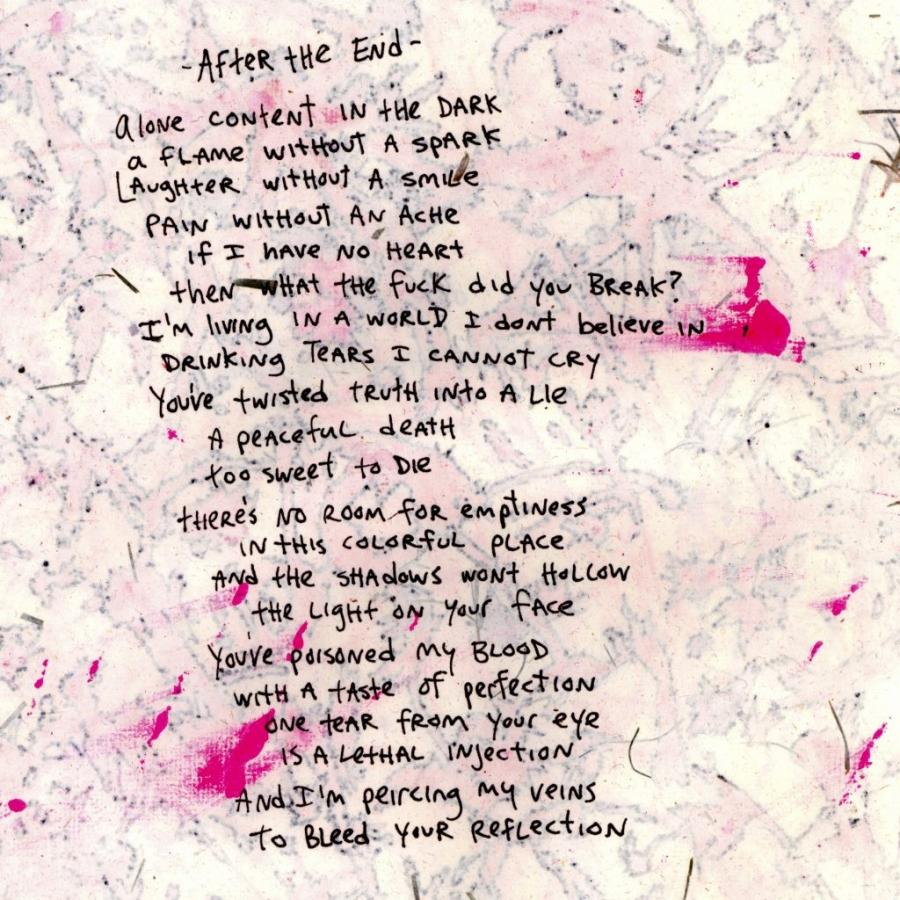 -AfteR tHe End-
alone content IN tHe DARK
a fLAME WitHOUt A SpARK
LAUgHteR witHOUt A SmiLe
PAIN WitHOUt AN AcHe
if I HAVe NO HeARt
then WHAt tHe fucK did you BReaK?
I'm living IN A WORLD I dont believe IN
DRINKING TeARS I CANNOt CRy
You've twisted tRutH INto A Lie
A peAcefuL deAtH
too sweet to Die
tHeRe's NO ROOM foR emptiness
IN tHis coLoRfuL pLAce
ANd tHe SHAdows wont HoLLow
tHe LigHt on your fAce
You've poisoned my BLOOD
witH A tAste of peRfection
one teAR fRom your eye
is A LetHAL injection
And I'm peircing my veins
to BLeed YouR RefLection